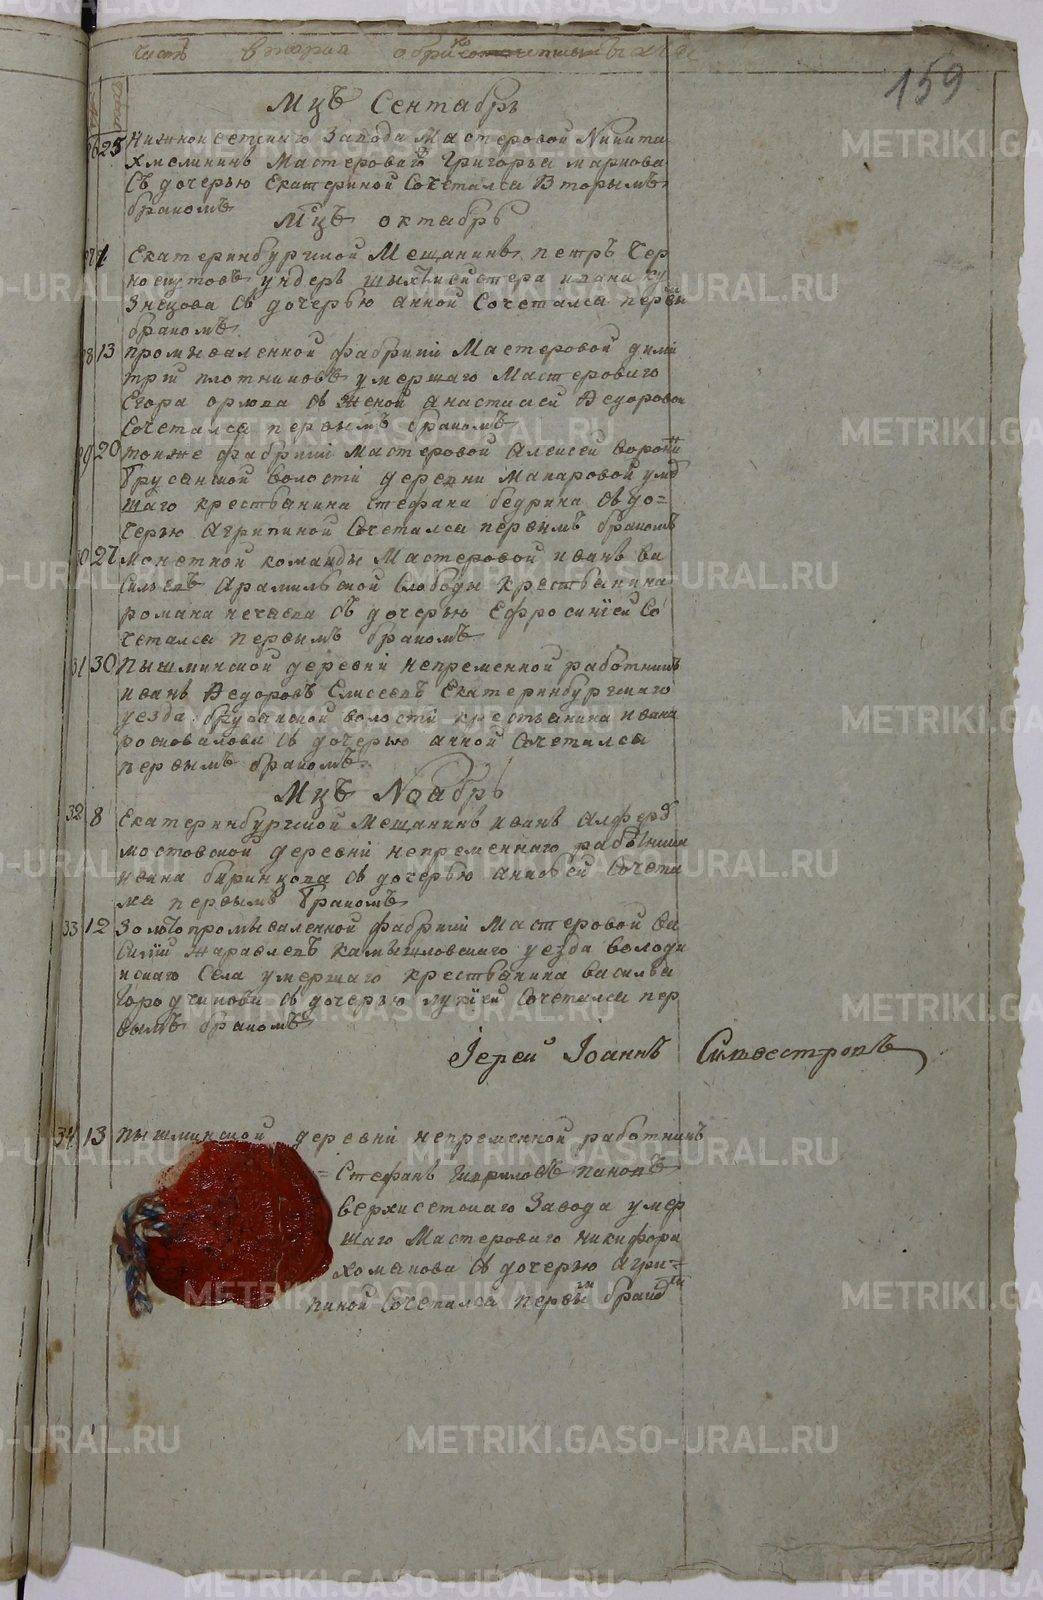 часть вторая о бракосочетавшихся
159
Мцъ Сентябрь
25 Нижноисетского завода Мастеровой Никита
Хмелининъ Мастероваго Григорья маркова
Съ дочерью Екатериной Сочетался Вторымъ
бракомъ
Мцъ октябрь
27 1 Екатеринбургской Мещанинъ петръ Чер
носкутовъ ундеръ шихтмейстера ивана Ку
Знецова Съ дочерью анной Сочетался первы
бракомъ
28 13 промываленной фабрики Мастеровой дими
трїй плотниковъ умершаго Мастероваго
Егора орлова Съ женой анастасией Федоровой
Сочетался первымъ бракомъ
29 20 тояже фабрики мастеровой алексей
брусянской волости деревни макаровой умер
шаго крестьянина стефана бедрина Съ до=
черью агрипиной Сочетался первымъ бракомъ
30 27 монетной команды Мастеровой иванъ ва
сильевъ арамильской Слободы крестьянина
романа нечаева Съ дочерью Ефросинїей Со
четался первымъ бракомъ
31 30 пышминской деревни непременной работникъ
иванъ Федоровъ Елисеевъ Екатеринбургскаго
уезда брусянской волости крестьянина ивана
Съ дочерью анной Сочетался
первымъ бракомъ
Мцъ Ноябрь
32 8 Екатеринбургской Мещанинъ иванъ Алферов
мостовской деревни непременнаго работника
ивана биринцова Съ дочерью Сочета
лся первымъ бракомъ
33 12 Золотопромываленной фабрики Мастеровой ва
силїй жаравлевъ камышловскаго уезда володи
нскаго Села умершаго крестьянина василья
городчикова Съ дочерью лукїей Сочетался пер
вымъ бракомъ
Іерей Іоаннъ Силвестровъ
34 13 пышминской деревни непременной работникъ
= Стефанъ Гавриловъ пановъ
верхисетскаго Завода умер
шаго Мастероваго никифора
хоманова Съ дочерью агри=
пиной Сочетался первым браком
METRIKI.GASO-URAL.RU